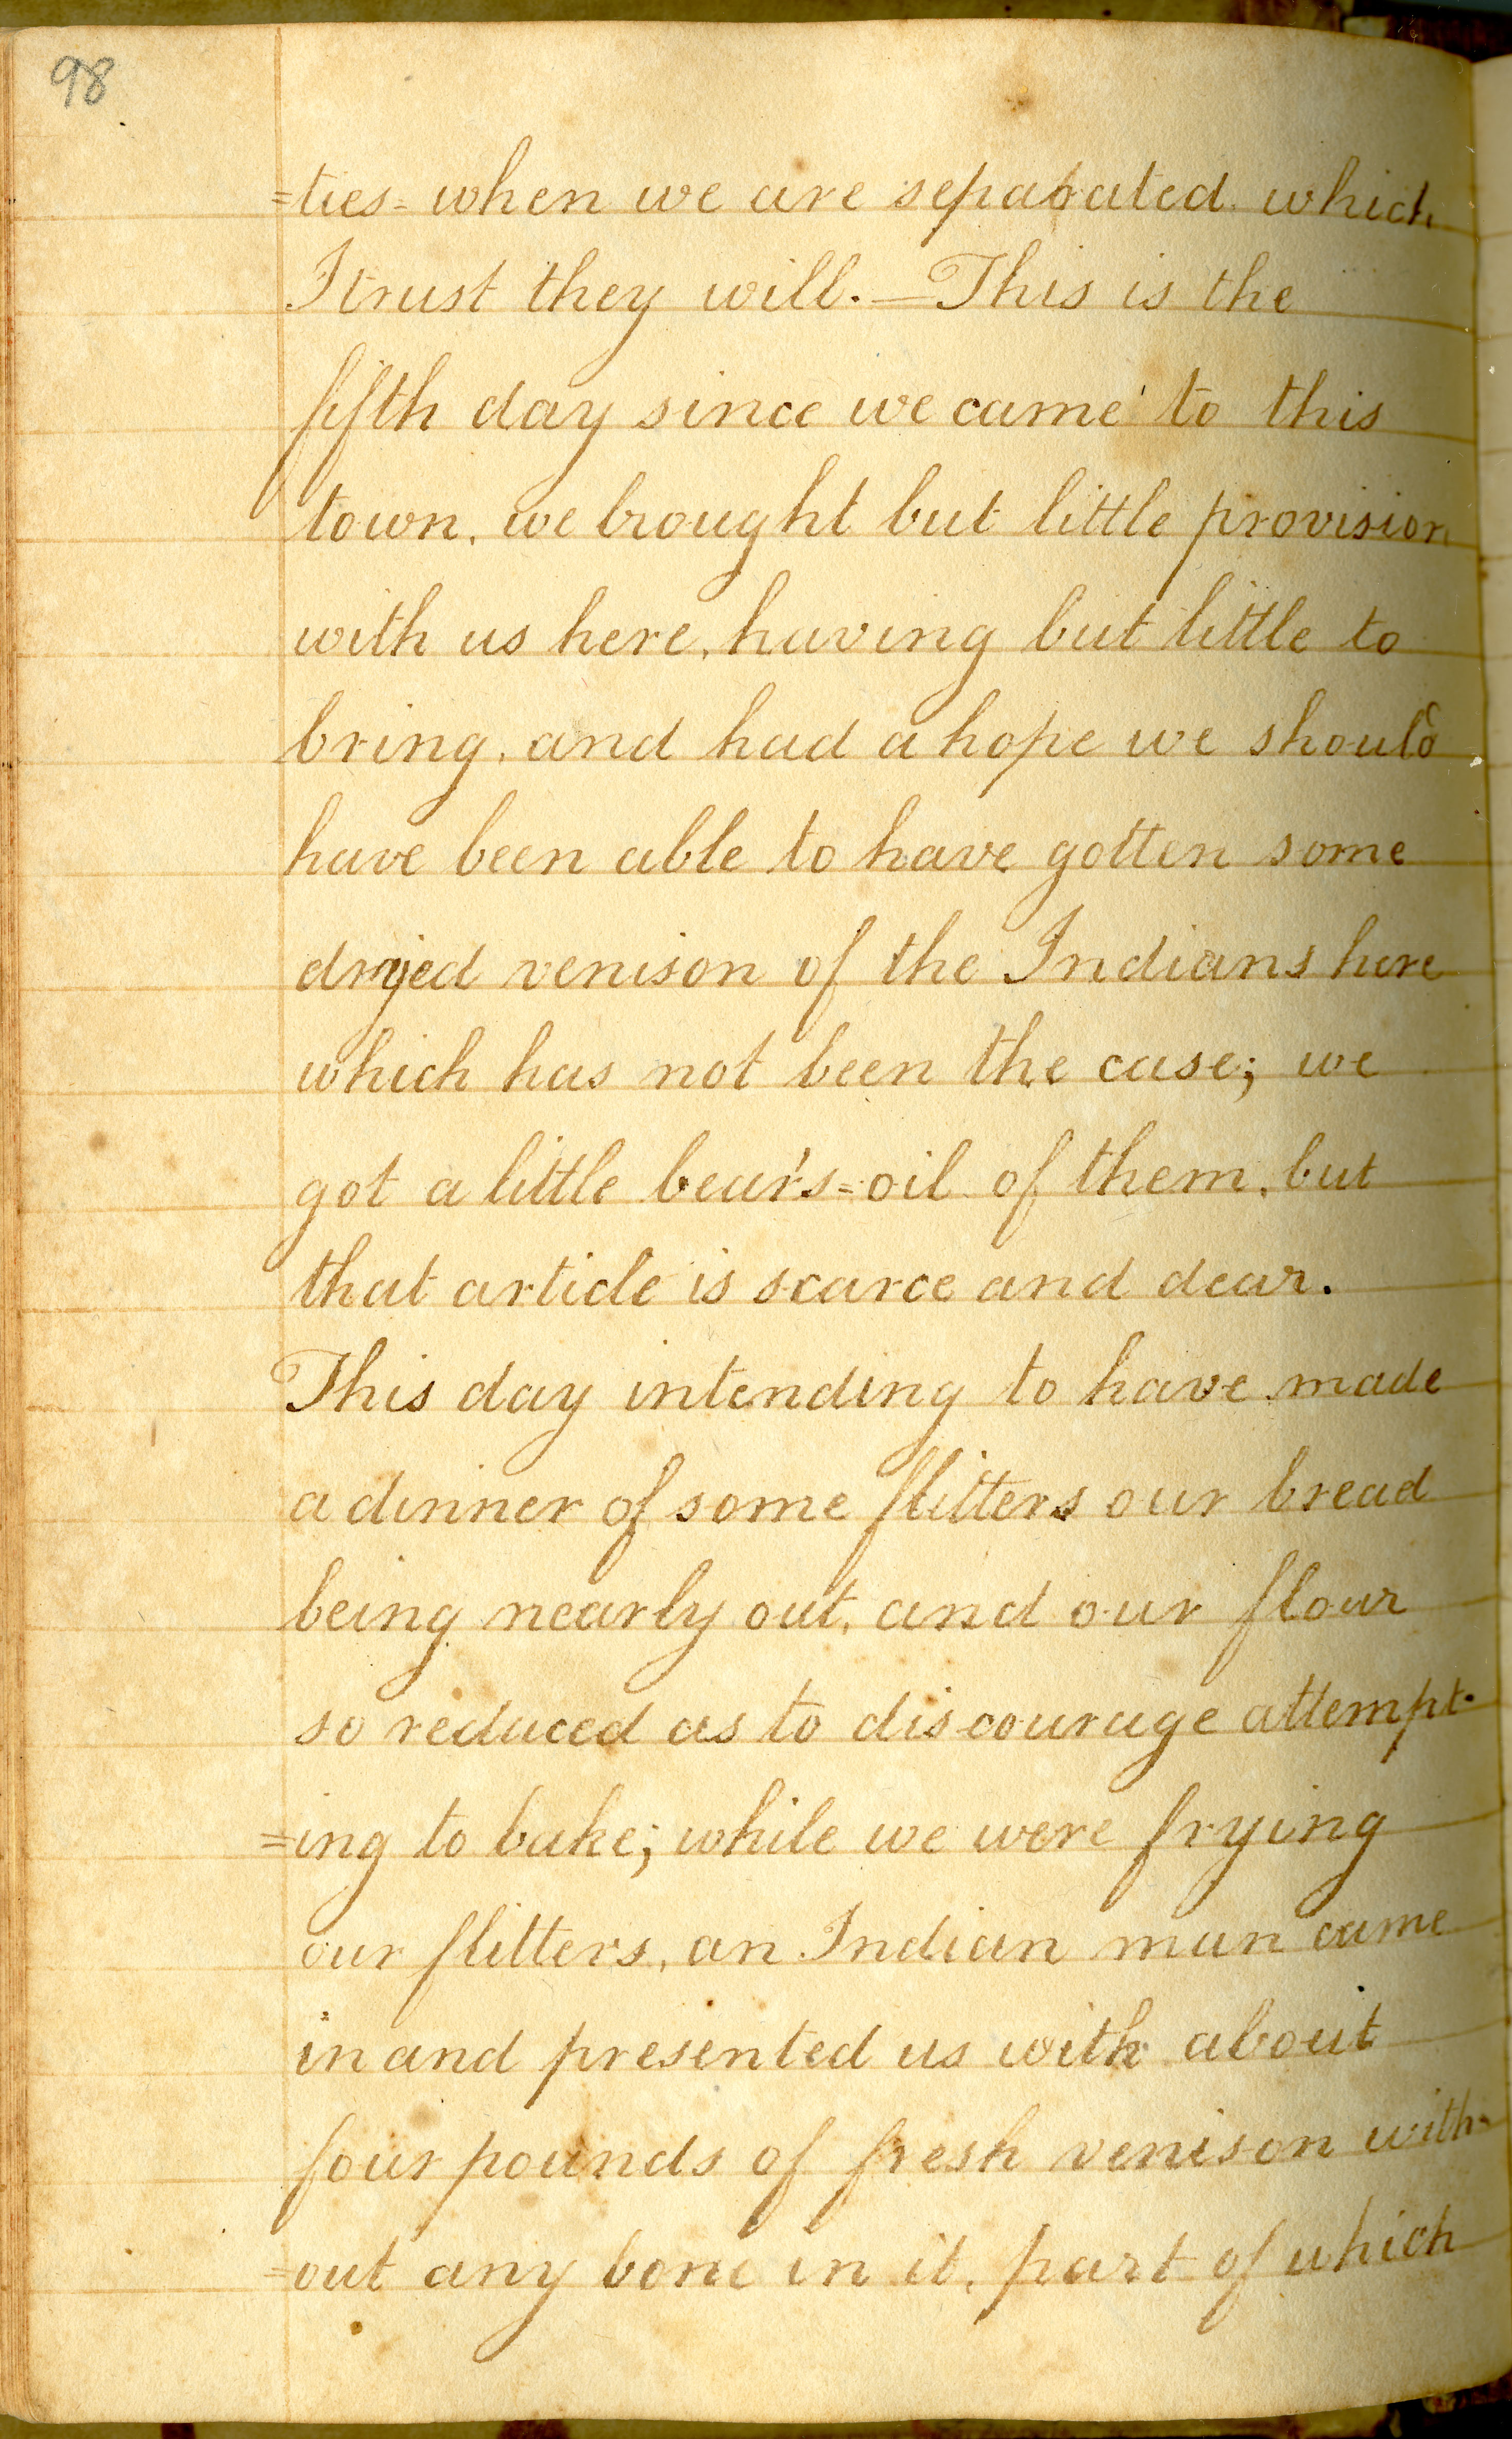 98
=ties= when we are separated which
I trust they will.—This is the
fifth day since we came to this
town, we brought but little provision
with us here, having but little to
bring, and had a hope we should
have been able to have gotten some
dryed venison of the Indians here
which has not been the case; we
got a little bear's=oil of them, but
that article is scarce and dear.
This day intending to have made
a dinner of some flitters our bread
being nearly out, and our flour
so reduced as to discourage attempt-
=ing to bake; while we were frying
our flitters, an Indian man came
in and presented us with about
four pounds of fresh venison with-
=out any bone in it, part of which